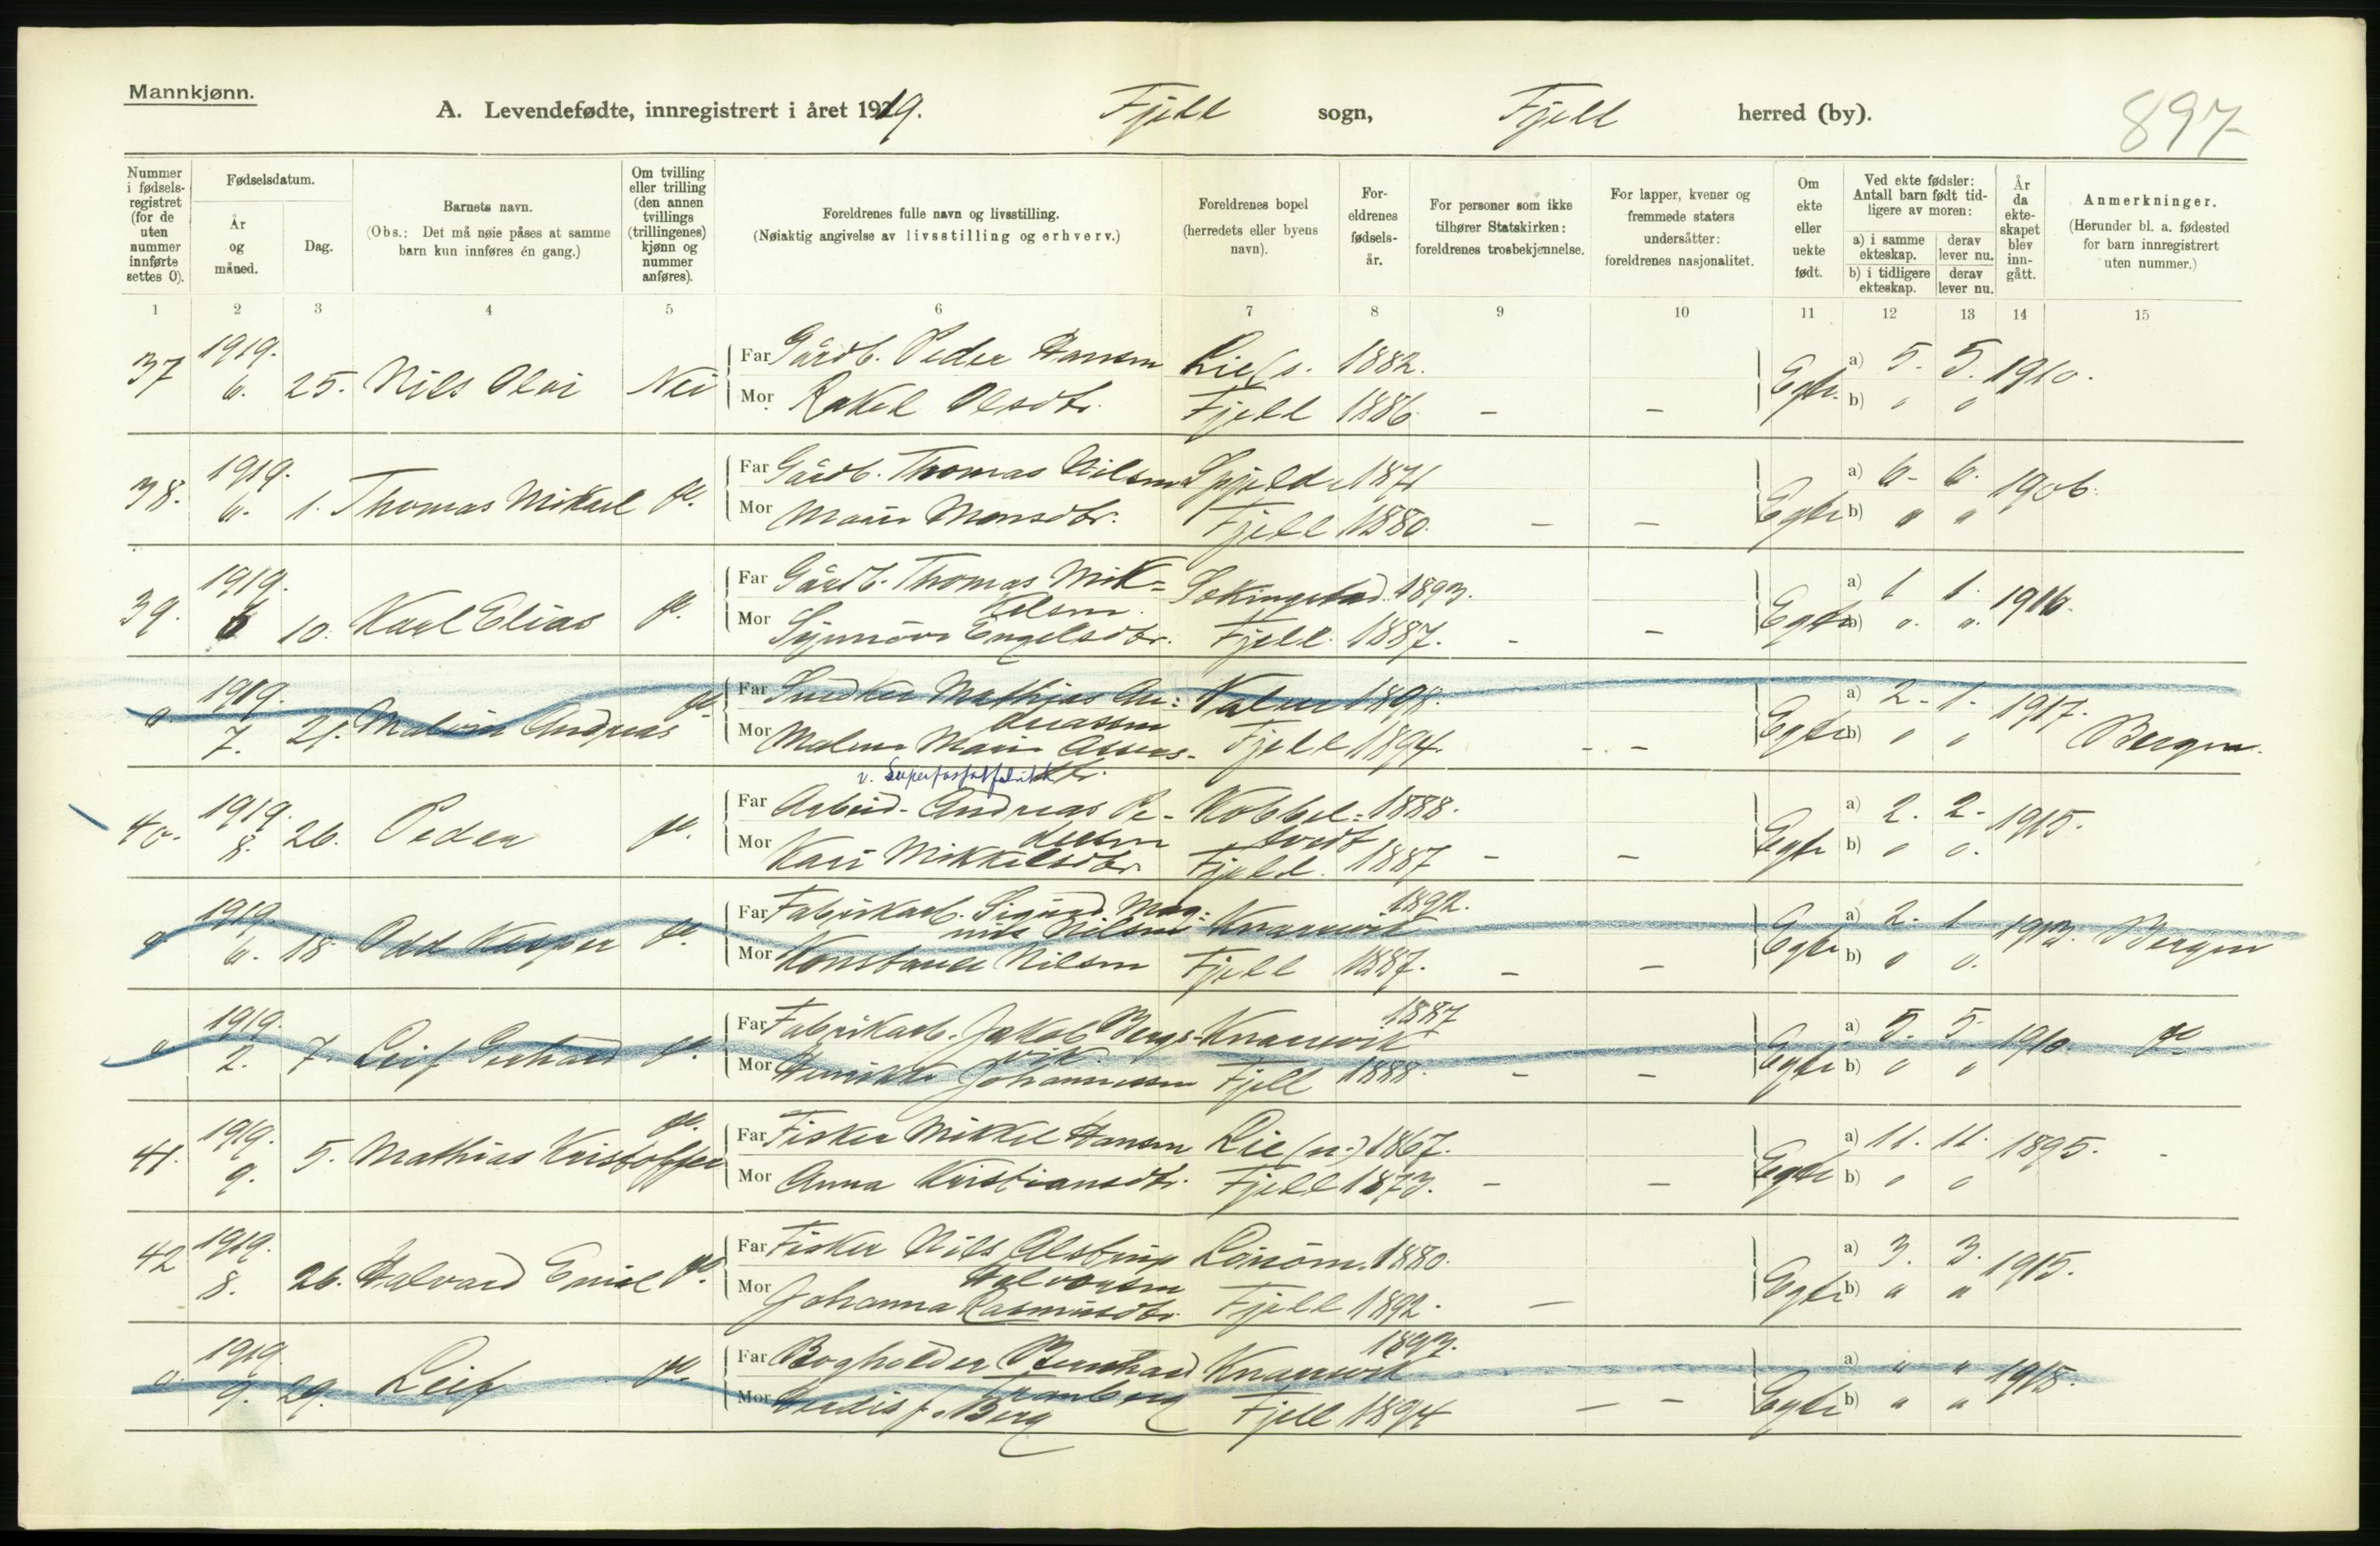 Mannkjønn.
A. Levendefødte, innregistrert i året 1919. Fjell sogn, Fjell herred (by). 897
Nummer i fødsels-registret (for de uten nummer innførte settes 0).
Fødselsdatum.
År og måned.
Dag.
Barnets navn.
(Obs.: Det må nøie påses at samme barn kun innføres én gang.)
Om tvilling eller trilling (den annen tvillings (trillingenes) kjønn og nummer anføres).
Foreldrenes fulle navn og livsstilling.
(Nøiaktig angivelse av livsstilling og erhverv.)
Foreldrenes bopel (herredets eller byens navn).
For-eldrenes fødsels-år.
For personer som ikke tilhører Statskirken: foreldrenes trosbekjennelse.
For lapper, kvener og fremmede staters undersåtter: foreldrenes nasjonalitet.
Om ekte eller uekte født.
Ved ekte fødsler: Antall barn født tid-ligere av moren:
a) i samme ekteskap. derav lever nu.
b) i tidligere ekteskap. derav lever nu.
År da ekte-skapet blev inn-gått.
Anmerkninger.
(Herunder bl. a. fødested for barn innregistrert uten nummer.)
1 2 3 4 5 6 7 8 9 10 11 12 13 14 15
37 1919. 6. 25. Nils Olai Nei Far Gårdb. Peder Hansen Lie (s. 1882. Egte a) 5. 5. 1910.
Mor Rakel Olsdtr. Fjell 1886. - - b) " "
38. 1919. 6. 1. Thomas Mikael do. Far Gårdb. Thomas Nilsen Spjeld 1871 Egte a) 6. 6. 1906.
Mor Marie Monsdtr. Fjell 1880. - - b) " "
39. 1919. 6 10. Karl Elias do. Far Gårdb. Thomas Mik=kelsen. Sekingstad 1893. Egte a) 1 1. 1916.
Mor Synnöve Engelsdtr. Fjell. 1887. - - b) " "
0. 1919. 7. 21. Malvin Andreas do Far Snedker Mathias An=dreassen Valen 1898. Egte a) 2. 1. 1917. Bergen.
Mor Malene Marie Assens-dtr. Fjell 1894. - - b) " "
v. Superfosfatfabrikk
40. 1919. 8. 26. Peder do. Far Arbeid. Andreas Pe-dersen Kobbel=tvedt 1888. Egte a) 2. 2. 1915.
Mor Kari Mikkelsdtr. Fjell. 1887 - - b) " "
0 1919. 6. 18. Odd Kasper do. Far Fabrikarb. Sigurd Mag=nus Nilsen Knarrevik 1892. Egte a) 2. 1 1913. Bergen
Mor Konstance Nilsen Fjell 1887. - - b) " "
0 1919. 2. 7. Leif Gerhard do. Far Fabrikarb. Jakob Bergs=vik. Knarrevik 1887 Egte a) 5. 5 1910. do
Mor Henrikke Johannessen Fjell 1888. - - b) " "
41. 1919. 9. 5. Mathias Kristoffer do. Far Fisker Mikkel Hansen Lie (n.) 1867. Egte a) 11. 11. 1895. -
Mor Anna Kristiansdtr. Fjell 1873. - - b) " "
42 1919. 8. 26. Halvard Emil do. Far Fisker Nils Alstrup Halvorsen 1880. Egte a) 3. 3. 1915.
Mor Johanna Rasmusdtr. Fjell 1892. - b) " "
0. 1919. 9. 29. Leif do. Far Bogholder Bernhard Knarrevik 1893. Egte a) " " 1918.
Mor Herdis f. Berg Fjell 1894 - - b) " "